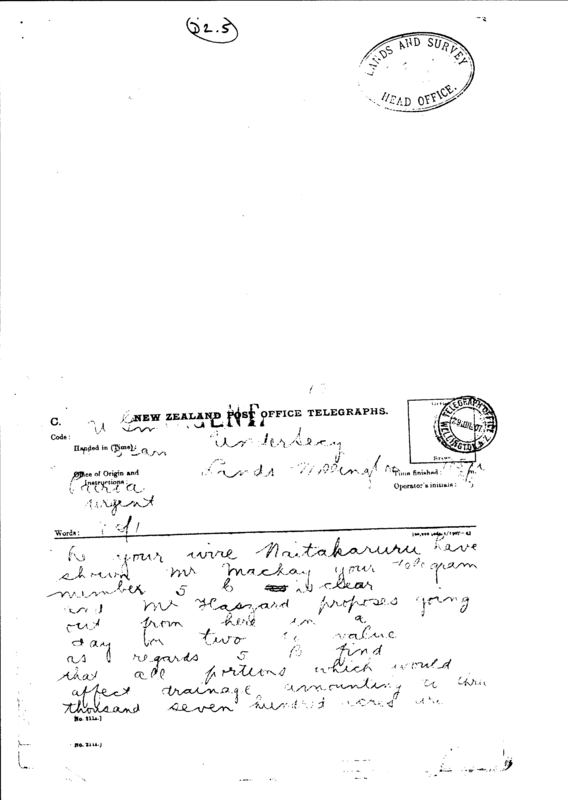 D2.5
LANDS AND SURVEY
HEAD OFFICE.
NEW ZEALAND POST OFFICE TELEGRAPHS.
C.
TELEGRAPH OFFICE
WELLINGTON N.Z.
Code:
Handed in (Time):
UnderSecy
Office of Origin and
Instructions:
Lands
Time finished:
Operator's initials:
Paeroa
urgent
Words:
Re your wire Waitakaruru have
shown Mr Mackay your telegram
number 5 C is clear
and Mr Hassard proposes going
out from here in a
day or two to value
as regards 5 B find
that all portions which would
affect drainage amounting to three
thousand seven hundred acres are
(No. 211a.)
(No. 211a.)